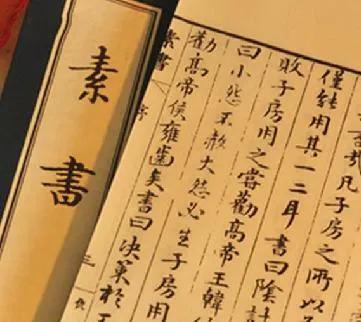 哉凡子房之所以
僅能用其一二耳書曰陰計
敗子房用之嘗勸高帝王韓
曰小怨不赦大怨必生子房用
勸高帝侯雍齒矣書曰決策於
素書 序 三
素書